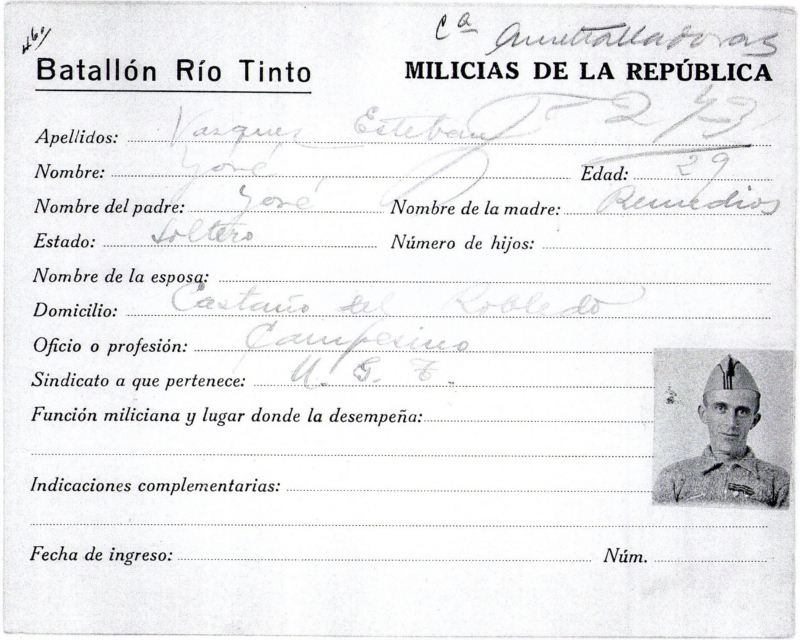 Cª Ametralladoras
Batallón Río Tinto MILICIAS DE LA REPÚBLICA
Apellidos: Vasquez Esteban
Nombre: José Edad: 29
Nombre del padre: José Nombre de la madre: Remedios
Estado: Soltero Número de hijos:
Nombre de la esposa:
Domicilio: Castaño del Robledo
Oficio o profesión: Campesino
Sindicato a que pertenece: U. G. T.
Función miliciana y lugar donde la desempeña:
Indicaciones complementarias:
Fecha de ingreso: Núm.